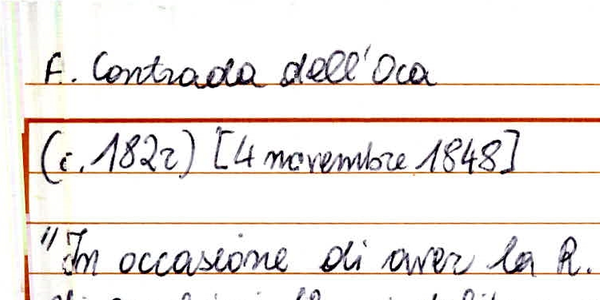 F. Contrada dell'Oca
(c. 182r) [4 novembre 1848]
"In occasione di aver la R.